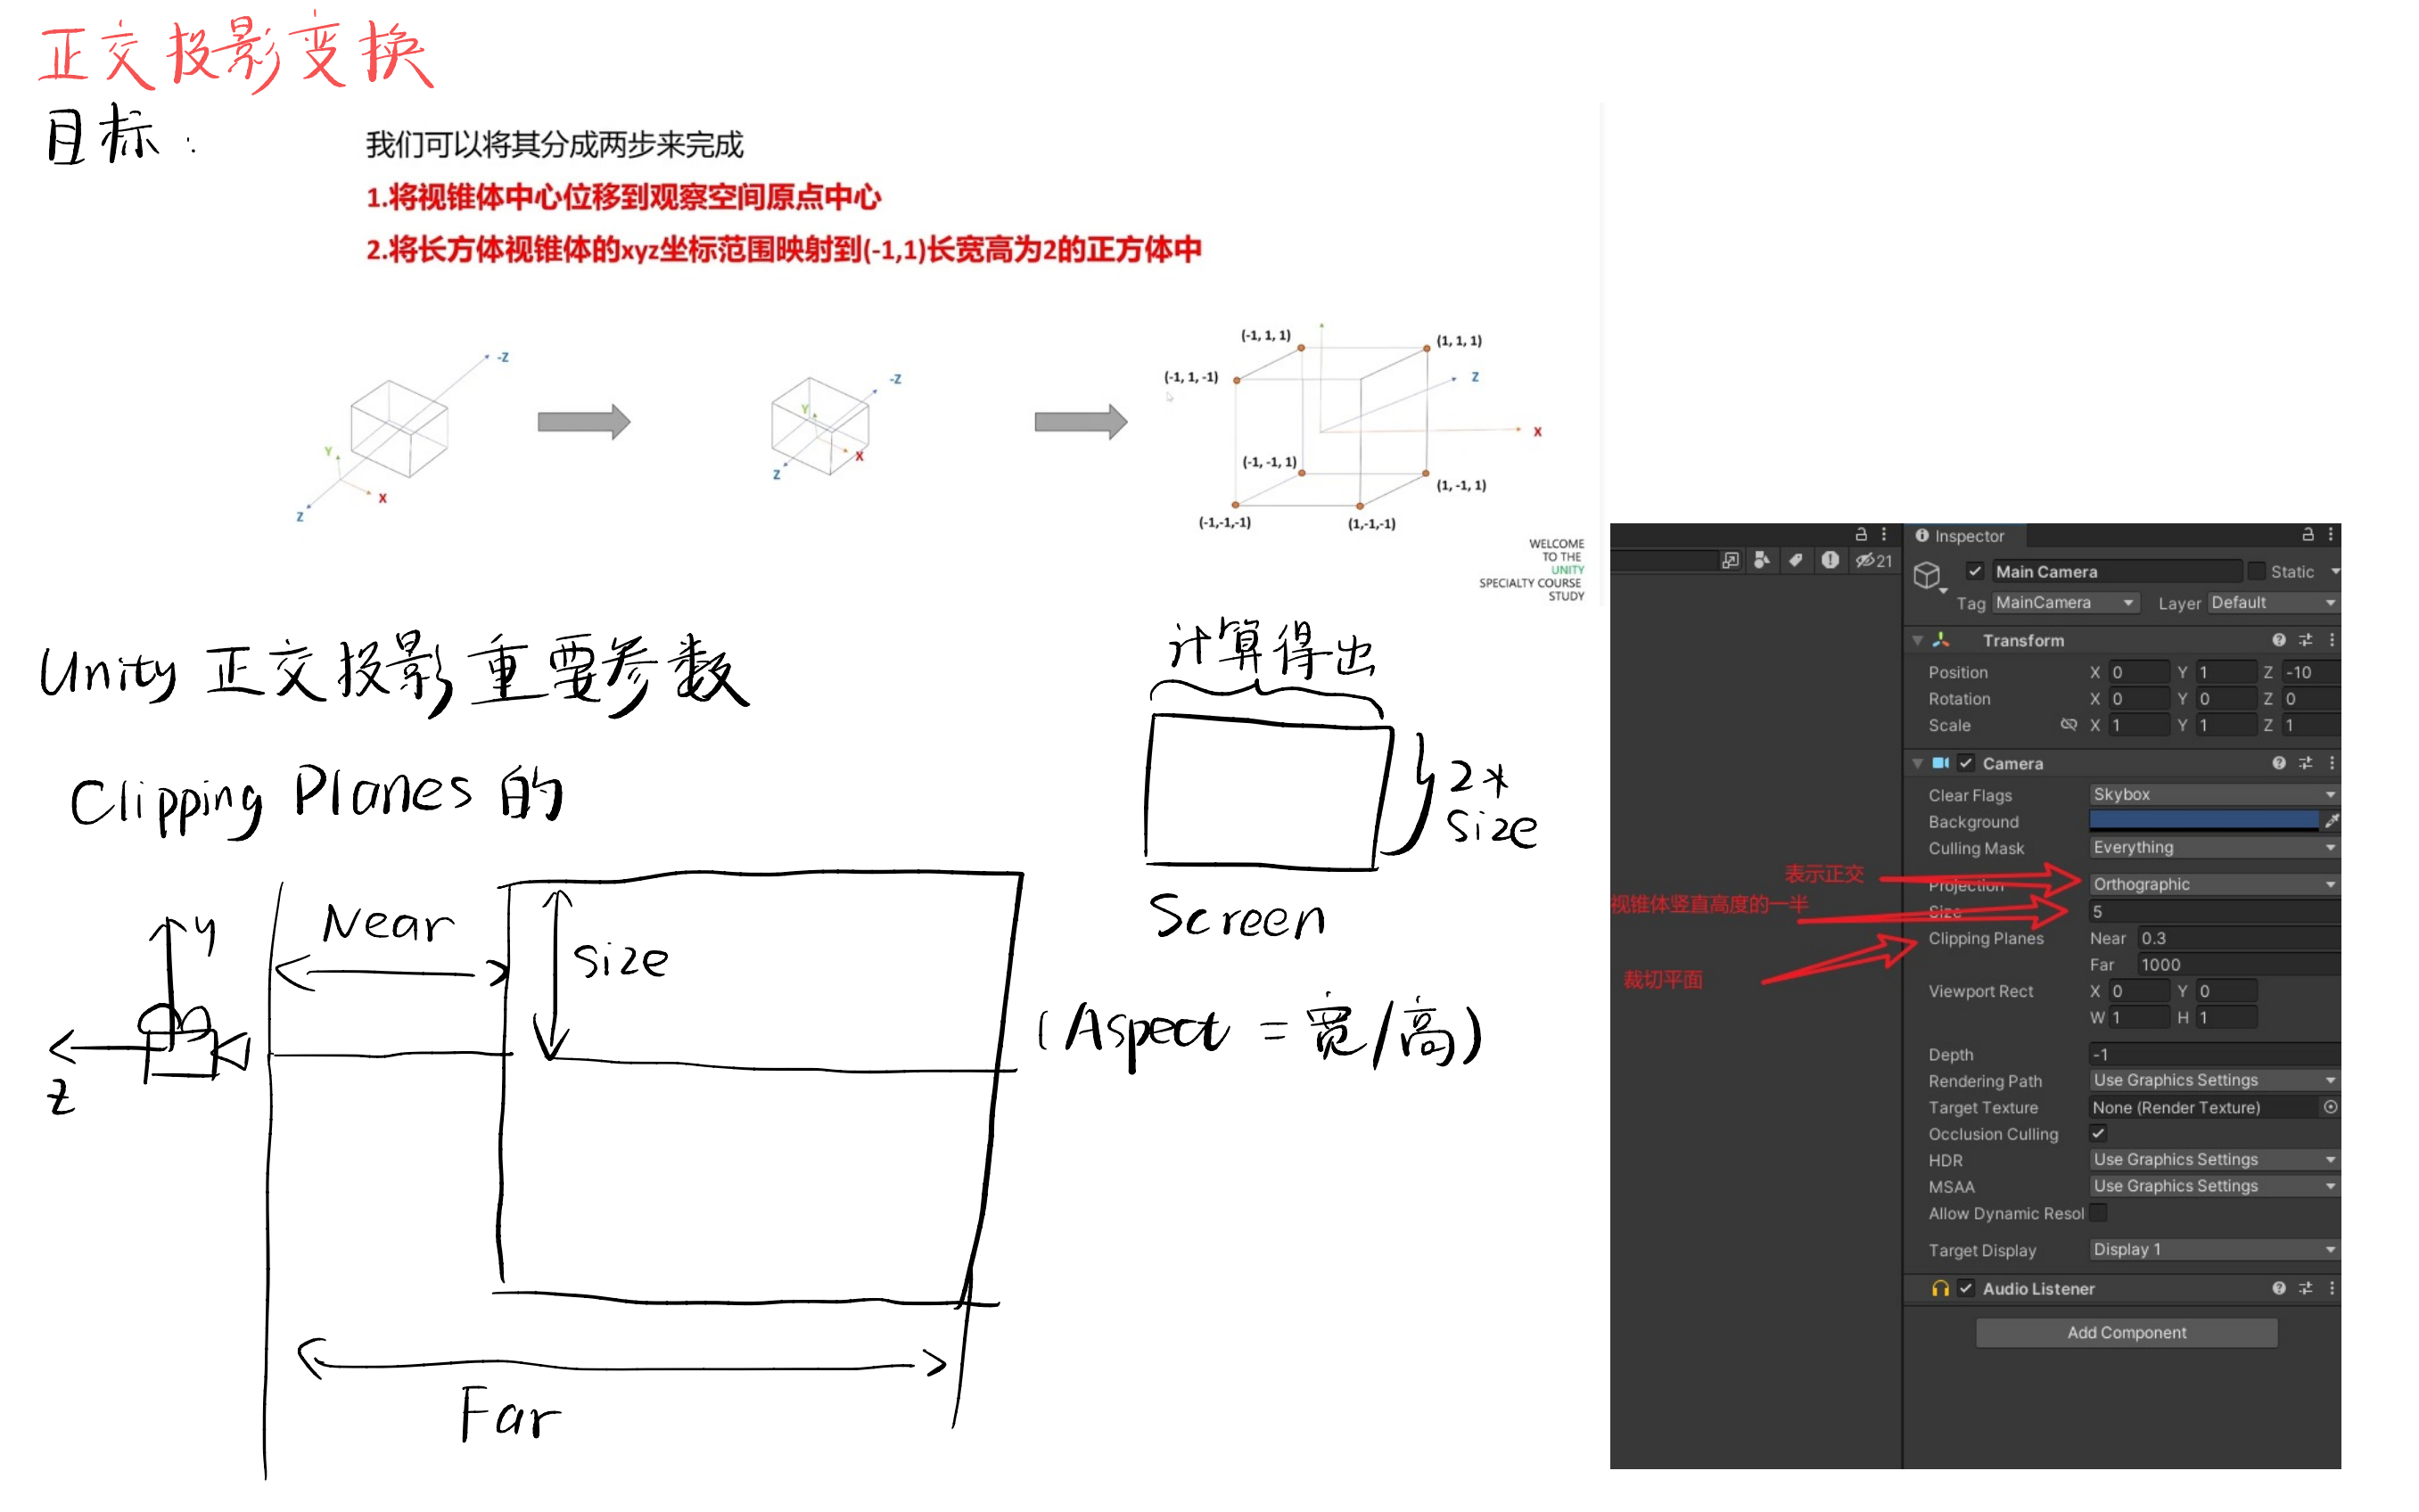 正交投影变换
目标：
我们可以将其分成两步来完成
1.将视锥体中心位移到观察空间原点中心
2.将长方体视锥体的xyz坐标范围映射到(-1,1)长宽高为2的正方体中
-Z
Y
X
Z
-Z
Y
X
Z
(-1, 1, 1)
(1, 1, 1)
(-1, 1, -1)
Z
X
(-1, -1, 1)
(1, -1, 1)
(-1,-1,-1)
(1,-1,-1)
WELCOME
TO THE
UNITY
SPECIALTY COURSE
STUDY
Unity 正交投影重要参数
Clipping Planes 的
计算得出
2*
Size
Screen
(Aspect = 宽/高)
Near
Size
y
z
Far
21
Inspector
Main Camera
Static
Tag MainCamera Layer Default
Transform
Position X 0 Y 1 Z -10
Rotation X 0 Y 0 Z 0
Scale X 1 Y 1 Z 1
Camera
Clear Flags Skybox
Background
Culling Mask Everything
表示正交
Projection Orthographic
视锥体竖直高度的一半
Size 5
Clipping Planes Near 0.3
Far 1000
裁切平面
Viewport Rect X 0 Y 0
W 1 H 1
Depth -1
Rendering Path Use Graphics Settings
Target Texture None (Render Texture)
Occlusion Culling
HDR Use Graphics Settings
MSAA Use Graphics Settings
Allow Dynamic Resol
Target Display Display 1
Audio Listener
Add Component